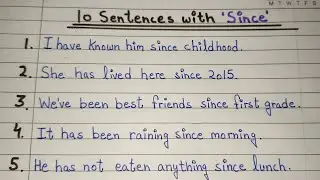 M T W T F S
10 Sentences with 'Since'
1. I have known him since childhood.
2. She has lived here since 2015.
3. We've been best friends since first grade.
4. It has been raining since morning.
5. He has not eaten anything since lunch.